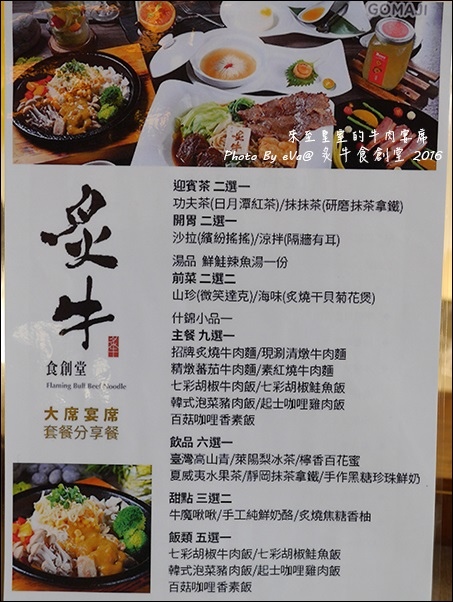 GOMAJI
來至皇室的牛肉宴席
Photo By eVa@ 炙牛食創堂 2016
炙牛
食創堂
Flaming Bull Beef Noodle
大席宴席
套餐分享餐
迎賓茶 二選一
功夫茶(日月潭紅茶)/抹抹茶(研磨抹茶拿鐵)
開胃 二選一
沙拉(繽紛搖搖)/涼拌(隔牆有耳)
湯品 鮮鮭辣魚湯一份
前菜 二選二
山珍(微笑達克)/海味(炙燒干貝菊花煲)
什錦小品一
主餐 九選一
招牌炙燒牛肉麵/現涮清燉牛肉麵
精燉蕃茄牛肉麵/素紅燒牛肉麵
七彩胡椒牛肉飯/七彩胡椒鮭魚飯
韓式泡菜豬肉飯/起士咖哩雞肉飯
百菇咖哩香素飯
飲品 六選一
臺灣高山青/萊陽梨冰茶/檸香百花蜜
夏威夷水果茶/靜岡抹茶拿鐵/手作黑糖珍珠鮮奶
甜點 三選二
牛魔啾啾/手工純鮮奶酪/炙燒焦糖香柚
飯類 五選一
七彩胡椒牛肉飯/七彩胡椒鮭魚飯
韓式泡菜豬肉飯/起士咖哩雞肉飯
百菇咖哩香素飯